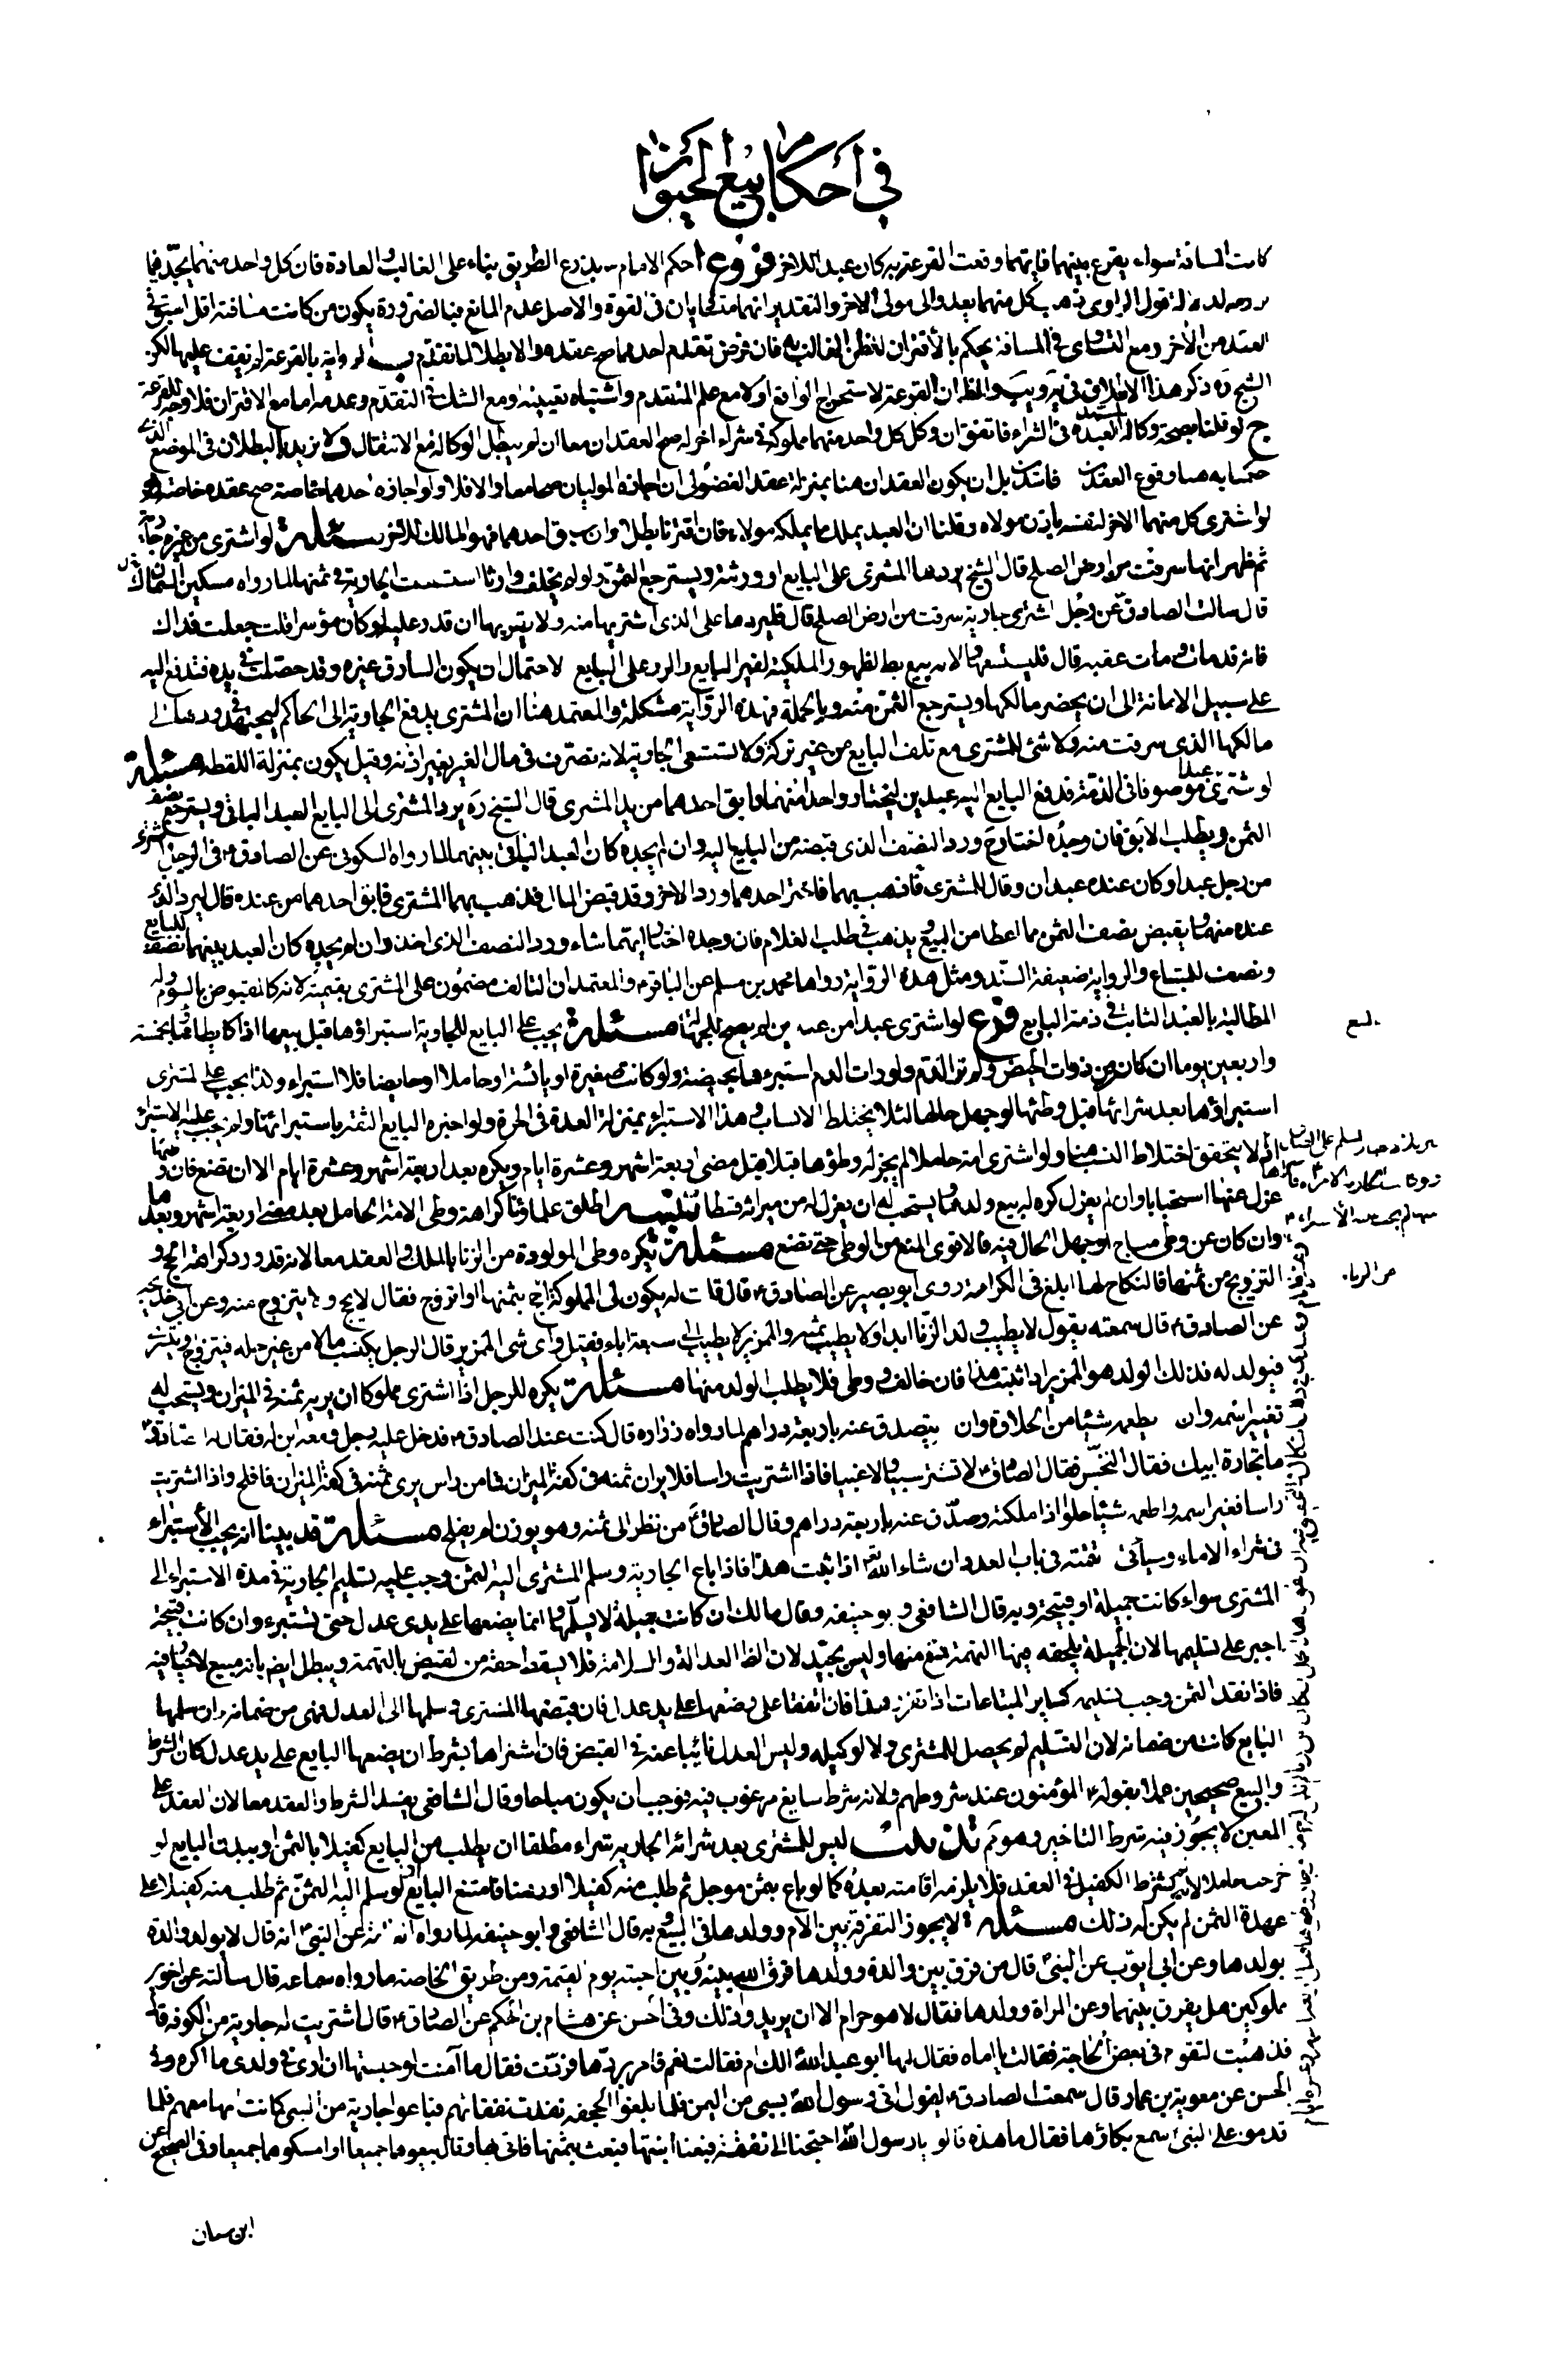 في أحكام بيع الحيوان
كانت المسافة سواء يقرع بينهما فايهما وقعت القرعة به كان عبد اللاخر فروع ا حكم الامام بذرع الطريق بناء على الغالب والعادة فان كل واحد منهما يجد فيما
لقول الراوي ذهب كل منهما يعدو الى مولى الاخر والتقدير انهما متكافيان في القوة والاصل عدم المانع فبالضرورة يكون من كانت مسافته اقل اسبق في
العقد من الاخر ومع التساوي في المسافة يحكم بالاقتران للظن الغالب به فان فرض تقدم احدهما صح عقده والا بطلا لما تقدم ب رواية بالقرعة لم نقف عليها لكن
الشيخ ره ذكر هذا الاطلاق في يب والظ ان القرعة لاستخراج الواقع اولا مع علم المتقدم واشتباه تعيينه ومع الشك في التقدم وعدمه اما مع الاقتران فلا وجه للقرعة
ج لو قلنا بصحة وكالة العبد في الشراء فاتفق ان وكل كل واحد منهما مملوكه في شراء اخر له صح العقدان معا ان لم يبطل الوكالة مع الانتقال ولا نريد بالبطلان في الموضع الذي
حكمنا به هنا وقوع العقدين بل ان يكون العقدان هنا بمنزلة عقد الفضولى ان اجازه الموليان صحا معا والا فلا ولو اجازه احدهما خاصة صح عقده خاصة
لو اشترى كل منهما الاخر لنفسه باذن مولاه وقلنا ان العبد يملك ما يملكه مولاه فان اقترنا بطلا وان سبق احدهما فهو المالك للاخر مسئلة لو اشترى من غيره جارية
ثم ظهر انها سرقت من ارض الصلح قال الشيخ يردها المشتري على البايع او ورثته ويسترجع الثمن ولو لم يخلف وارثا استسعيت الجارية في ثمنها لما رواه مسكين السمان
قال سالت الصادق عن رجل اشترى جارية سرقت من ارض الصلح قال فليردها على الذي اشتريها منه ولا يقربها ان قدر عليه او كان موسرا قلت جعلت فداك
فانه قد مات ومات عقبه قال فليستسعها ولانه بيع بط لظهور الملكية لغير البايع والرد على البايع لاحتمال ان يكون السارق غيره وقد حصلت في يده فتدفع اليه
على سبيل الامانة الى ان يحضر مالكها ويسترجع الثمن منه وبالجملة فهذه الرواية مشكلة والمعتمد هنا ان المشتري يدفع الجارية الى الحاكم ليجتهد في ردها الى
مالكها الذي سرقت منه ولا شئ للمشتري مع تلف البايع من غير تركة ولا تستسعى الجارية لانه تصرف في مال الغير بغير اذنه وقيل يكون بمنزلة اللقطة مسئلة
لو اشترى عبدا موصوفا في الذمة فدفع البايع اليه عبدين ليختار واحدا منهما فابق احدهما من يد المشتري قال الشيخ ره يرد المشتري الى البايع العبد الباقي ويسترجع نصف
الثمن ويطلب الابق فان وجده اختار ح ورد النصف الذي قبضه من البايع اليه وان لم يجده كان العبد الباقي بينهما لما رواه السكوني عن الصادق ع في الرجل اشترى
من رجل عبدا وكان عنده عبدان وقال للمشتري فاذهب بهما فاختر احدهما ورد الاخر وقد قبض المال فذهب بهما المشتري فابق احدهما من عنده قال ليرد الذي
عنده منهما ويقبض نصف الثمن مما اعطا من البيع ويذهب في طلب الغلام فان وجده اختار ايهما شاء ورد النصف الذي اخذ وان لم يجده كان العبد بينهما نصفه للبايع
ونصف للمبتاع والرواية ضعيفة السند ومثل هذه الرواية رواها محمد بن مسلم عن الباقر ع والمعتمد ان التالف مضمون على المشتري بقيمته لانه كالمقبوض بالسوم وله
المطالبة بالعبد الثابت في ذمة البايع فرع لو اشترى عبدا من عبدين لم يصح للجهالة مسئلة يجب على البايع للجارية استبراؤها قبل بيعها اذا كان يطاها بحيضة او بخمسة
واربعين يوما ان كان من ذوات الحيض ولم تر الدم ولو رات الدم استبرءها بحيضة ولو كانت صغيرة او يائسة او حاملا او حايضا فلا استبراء وكذا يجب على المشتري
استبراؤها بعد شرائها قبل وطئها لو جهل حالها لئلا يختلط الانساب وهذا الاستبراء بمنزلة العدة في الحرة ولو اخبره البايع الثقة باستبرائها لم يجب عليه الاستبراء
اذ لا يتحقق اختلاط النسب هنا ولو اشترى امة حاملا لم يجز له وطؤها قبلا قبل مضى اربعة اشهر وعشرة ايام ويكره بعد اربعة اشهر وعشرة ايام الا ان تضع فان وطئها
عزل عنها استحبابا وان لم يعزل كره له بيع ولدها ويستحب له ان يعزل له من ميراثه قسطا تنبيه اطلق علماؤنا كراهة وطى الامة الحامل بعد مضى اربعة اشهر وبعدها
وان كان عن وطى مباح او جهل الحال فيه فالاقوى المنع من الوطى حتى تضع مسئلة يكره وطى المولودة من الزنا بالملك والعقد معا لانه قد ورد كراهة الحج و
التزويج من ثمنها فالنكاح لها ابلغ في الكراهة روى ابو بصير عن الصادق ع قال قلت له يكون لي المملوكة احج بثمنها او اتزوج فقال لا يحج ولا يتزوج منه وعن ابي خديجة
عن الصادق ع قال سمعته يقول لا يطيب ولد الزنا ابدا ولا يطيب ثمنه والممزير لا يطيب الى سبعة اباء فقيل واي شى الممزير قال الرجل يكتسب مالا من غير حله فيتزوج ويتسرى
فيولد له فذلك الولد هو الممزير اذا ثبت هذا فان خالف ووطى فلا يطلب الولد منها مسئلة يكره للرجل اذا اشترى مملوكا ان يريه ثمنه في الميزان ويستحب له
تغيير اسمه وان يطعمه شيئا من الحلاوة وان يتصدق عنه باربعة دراهم لما رواه زراره قال كنت عند الصادق ع فدخل عليه رجل ومعه ابن له فقال له الصادق ع
ما تجارة ابيك فقال النخس فقال الصادق ع لا تشتر سبيا ولا غبيا فاذا اشتريت راسا فلا يرين ثمنه في كفة الميزان فما من راس يرى ثمنه في كفة الميزان فافلح واذا اشتريت
راسا فغير اسمه واطعمه شيئا حلوا اذا ملكته وصدق عنه باربعة دراهم وقال الصادق ع من نظر الى ثمنه وهو يوزن لم يفلح مسئلة قد بينا انه يجب الاستبراء
في شراء الاماء وسيأتى تتمته في باب العدد ان شاء الله اذا ثبت هذا فاذا باع الجارية وسلم المشتري اليه الثمن وجب عليه تسليم الجارية في مدة الاستبراء الى
المشتري سواء كانت جميلة او قبيحة وبه قال الشافعي وابو حنيفه وقال مالك ان كانت جميلة لا يسلمها وانما يضعها على يدي عدل حتى تستبرء وان كانت قبيحة
اجبر على تسليمها لان الجميلة يلحقه فيها التهمة فمنع منها وليس بجيد لان الظ العدالة والسلامة فلا يسقط حقه من القبض بالتهمة ويبطل ايض بانه مبيع لا خيار فيه
فاذا نقد الثمن وجب تسليمه كساير المبتاعات اذا تقرر هذا فان اتفقا على وضعها على يد عدل فان قبضها المشتري وسلمها الى العدل فهى من ضمانه وان سلمها
البايع كانت من ضمانه لان التسليم لم يحصل للمشتري ولا لوكيله وليس العدل نائبا عنه في القبض فان اشتراها بشرط ان يضعها البايع على يد عدل كان الشرط
والبيع صحيحين عملا بقوله ع المؤمنون عند شروطهم ولانه شرط سايغ مرغوب فيه فوجب ان يكون مباحا وقال الشافعي يفسد الشرط والعقد معا لان العقد على
المعين لا يجوز فيه شرط التاخير وهو مم تذنيب ليس للمشتري بعد شرائه الجارية شراء مطلقا ان يطلب من البايع كفيلا بالثمن او
خرجت حاملا لانه لم يشترط الكفيل في العقد فلا يلزمه اقامته بعده كما لو باع بثمن موجل ثم طلب منه كفيلا او رهنا فامتنع البايع ولو سلم اليه الثمن ثم طلب منه كفيلا على
عهدة الثمن لم يكن له ذلك مسئلة لا يجوز التفرقة بين الام وولدها في البيع وبه قال الشافعي وابو حنيفه لما رواه العامة عن النبي انه قال لا توله والدة
بولدها وعن ابي ايوب عن النبي قال من فرق بين والدة وولدها فرق الله بينه وبين احبته يوم القيمة ومن طريق الخاصة ما رواه سماعه قال سالته عن اخوين
مملوكين هل يفرق بينهما وعن المراة وولدها فقال لا هو حرام الا ان يريدوا ذلك وفي الحسن عن هشام بن الحكم عن الصادق ع قال اشتريت له جارية من الكوفة قال
فذهبت لتقوم في بعض الحاجة فقالت يا اماه فقال لها ابو عبد الله الك ام فقالت نعم فامر بردها فردت فقال ما آمنت لو حبستها ان ارى في ولدي ما اكره وفي
الحسن عن معوية بن عمار قال سمعت الصادق ع يقول اتى رسول الله بسبى من اليمن فلما بلغوا الجحفه نفدت نفقاتهم فباعوا جارية من السبى كانت امها معهم فلما
قدموا على النبي سمع بكاؤها فقال ما هذه قالوا يا رسول الله احتجنا الى نفقة فبعنا ابنتها فبعث بثمنها فاتى بها وقال بيعوهما جميعا او امسكوهما جميعا وفي الصحيح عن
ابن سنان